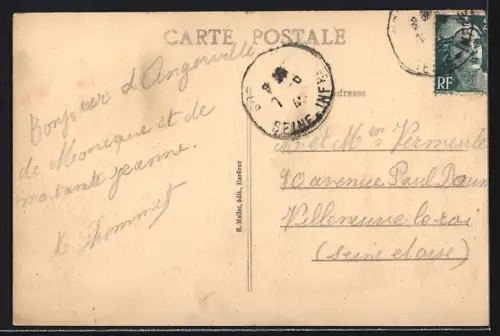 CARTE POSTALE
Bonjour d'Angerville
de Monique et de
ma tante Jeanne.
Thommet
SEINE-INFRE
R. Mollet, édit., Harfleur
Adresse
RF
Mr et Mme Vermeule
90 avenue Paul Doum
Villeneuve le roi
(Seine et oise)